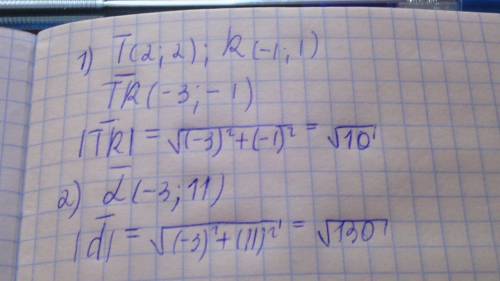 1) T̅(2; 2); R(-1; 1)
T̅R̅(-3; -1)
|T̅R̅| = √(-3)²+(-1)² = √10
2) d̅(-3; 11)
|d̅| = √(-3)²+(11)² = √130